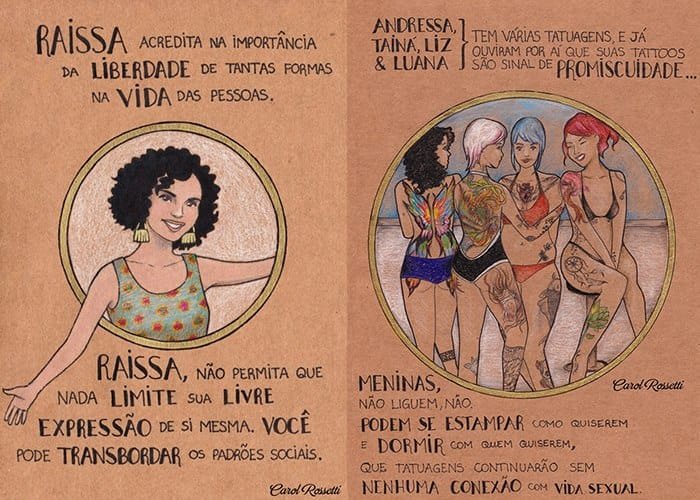 RAISSA ACREDITA NA IMPORTÂNCIA
DA LIBERDADE DE TANTAS FORMAS
NA VIDA DAS PESSOAS.
RAISSA, NÃO PERMITA QUE
NADA LIMITE SUA LIVRE
EXPRESSÃO DE SI MESMA. VOCÊ
PODE TRANSBORDAR OS PADRÕES SOCIAIS.
Carol Rossetti
ANDRESSA,
TAÍNÁ, LIZ
& LUANA
TEM VÁRIAS TATUAGENS, E JÁ
OUVIRAM POR AÍ QUE SUAS TATTOOS
SÃO SINAL DE PROMISCUIDADE...
Carol Rossetti
MENINAS,
NÃO LIGUEM, NÃO.
PODEM SE ESTAMPAR COMO QUISEREM
E DORMIR COM QUEM QUISEREM,
QUE TATUAGENS CONTINUARÃO SEM
NENHUMA CONEXÃO COM VIDA SEXUAL.